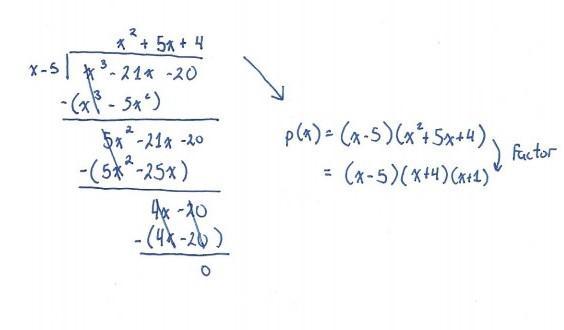 x² + 5x + 4
x-5 | x³ - 21x - 20
-(x³ - 5x²)
5x² - 21x - 20
-(5x² - 25x)
4x - 20
-(4x - 20)
0
p(x) = (x-5)(x²+5x+4)
Factor
= (x-5)(x+4)(x+1)